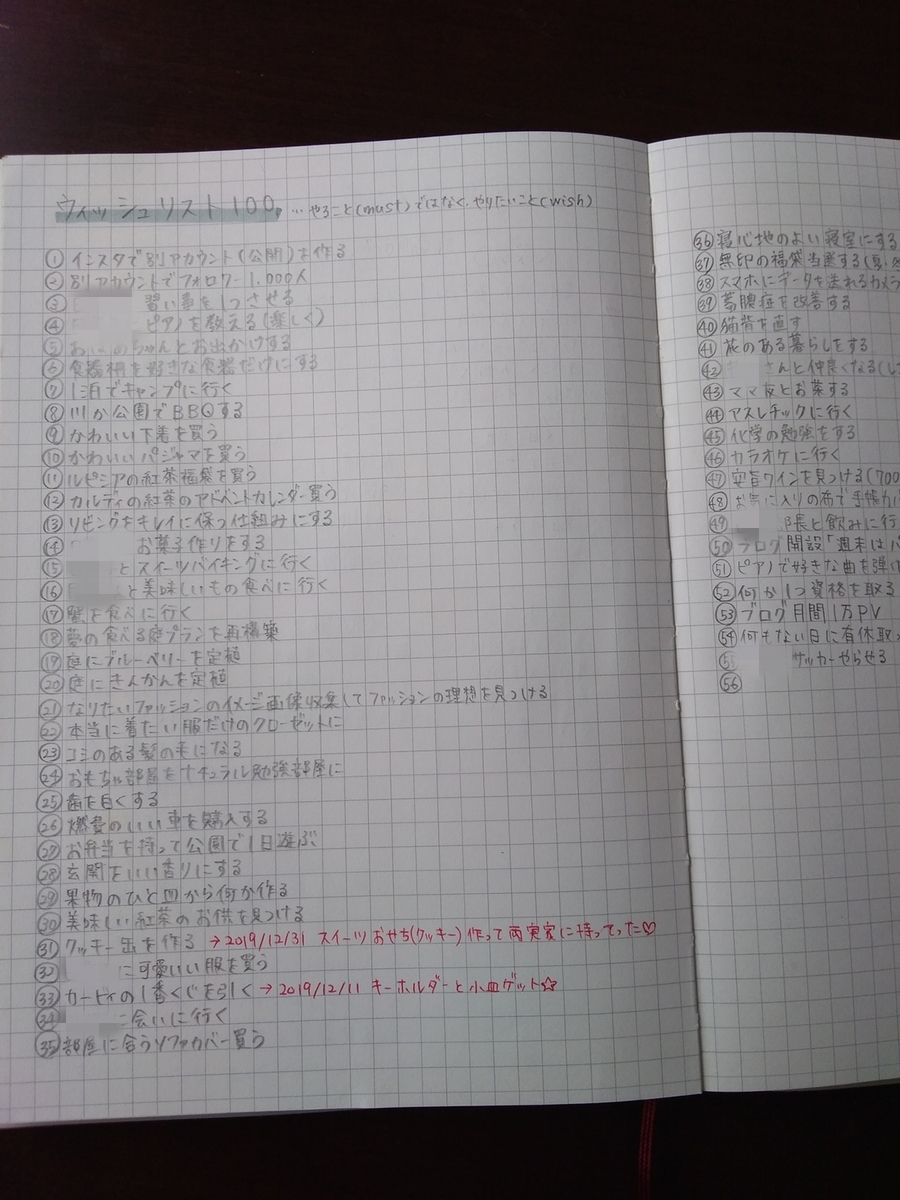 ウィッシュリスト100。…やること(must)ではなく、やりたいこと(wish)
① インスタで別アカウント(公開)を作る
② 別アカウントでフォロワー1,000人
③ 習い事を1つさせる
④ ピアノを教える(楽しく)
⑤ ちゃんとお出かけする
⑥ 食器棚を好きな食器だけにする
⑦ 1泊でキャンプに行く
⑧ 川か公園でBBQする
⑨ かわいい下着を買う
⑩ かわいいパジャマを買う
⑪ ルピシアの紅茶福袋を買う
⑫ カルディの紅茶のアドベントカレンダー買う
⑬ リビングをキレイに保つ仕組みにする
⑭ お菓子作りをする
⑮ とスイーツバイキングに行く
⑯ と美味しいもの食べに行く
⑰ 蟹を食べに行く
⑱ 夢の食べる庭プランを再構築
⑲ 庭にブルーベリーを定植
⑳ 庭にきんかんを定植
㉑ なりたいファッションのイメージ画像収集してファッションの理想を見つける
㉒ 本当に着たい服だけのクローゼットに
㉓ コシのある髪の毛になる
㉔ おもちゃ部屋をナチュラル勉強部屋に
㉕ 歯を白くする
㉖ 燃費のいい車を購入する
㉗ お弁当を持って公園で1日遊ぶ
㉘ 玄関をいい香りにする
㉙ 果物のひと皿から何か作る
㉚ 美味しい紅茶のお供を見つける
㉛ クッキー缶を作る →2019/12/31 スイーツおせち(クッキー)作って両実家に持ってった♡
㉜ に可愛いい服を買う
㉝ カーディの1番くじを引く →2019/12/11 キーホルダーと小皿ゲット☆
㉞ に会いに行く
㉟ 部屋に合うソファカバー買う
㊱ 寝心地のよい寝室にする
㊲ 無印の福袋当選する(夏、
㊳ スマホにデータを送れるカメラ
㊴ 蓄膿症を改善する
㊵ 猫背を直す
㊶ 花のある暮らしをする
㊷ さんと仲良くなる(
㊸ ママ友とお茶する
㊹ アスレチックに行く
㊺ 化学の勉強をする
㊻ カラオケに行く
㊼ 安旨ワインを見つける(700
㊽ お気に入りの布で手帳カ
㊾ 隊長と飲みに行
㊿ ブログ開設「週末は
51 ピアノで好きな曲を弾け
52 何か1つ資格を取る
53 ブログ月間1万PV
54 何もない日に有休取
55 サッカーやらせる
56